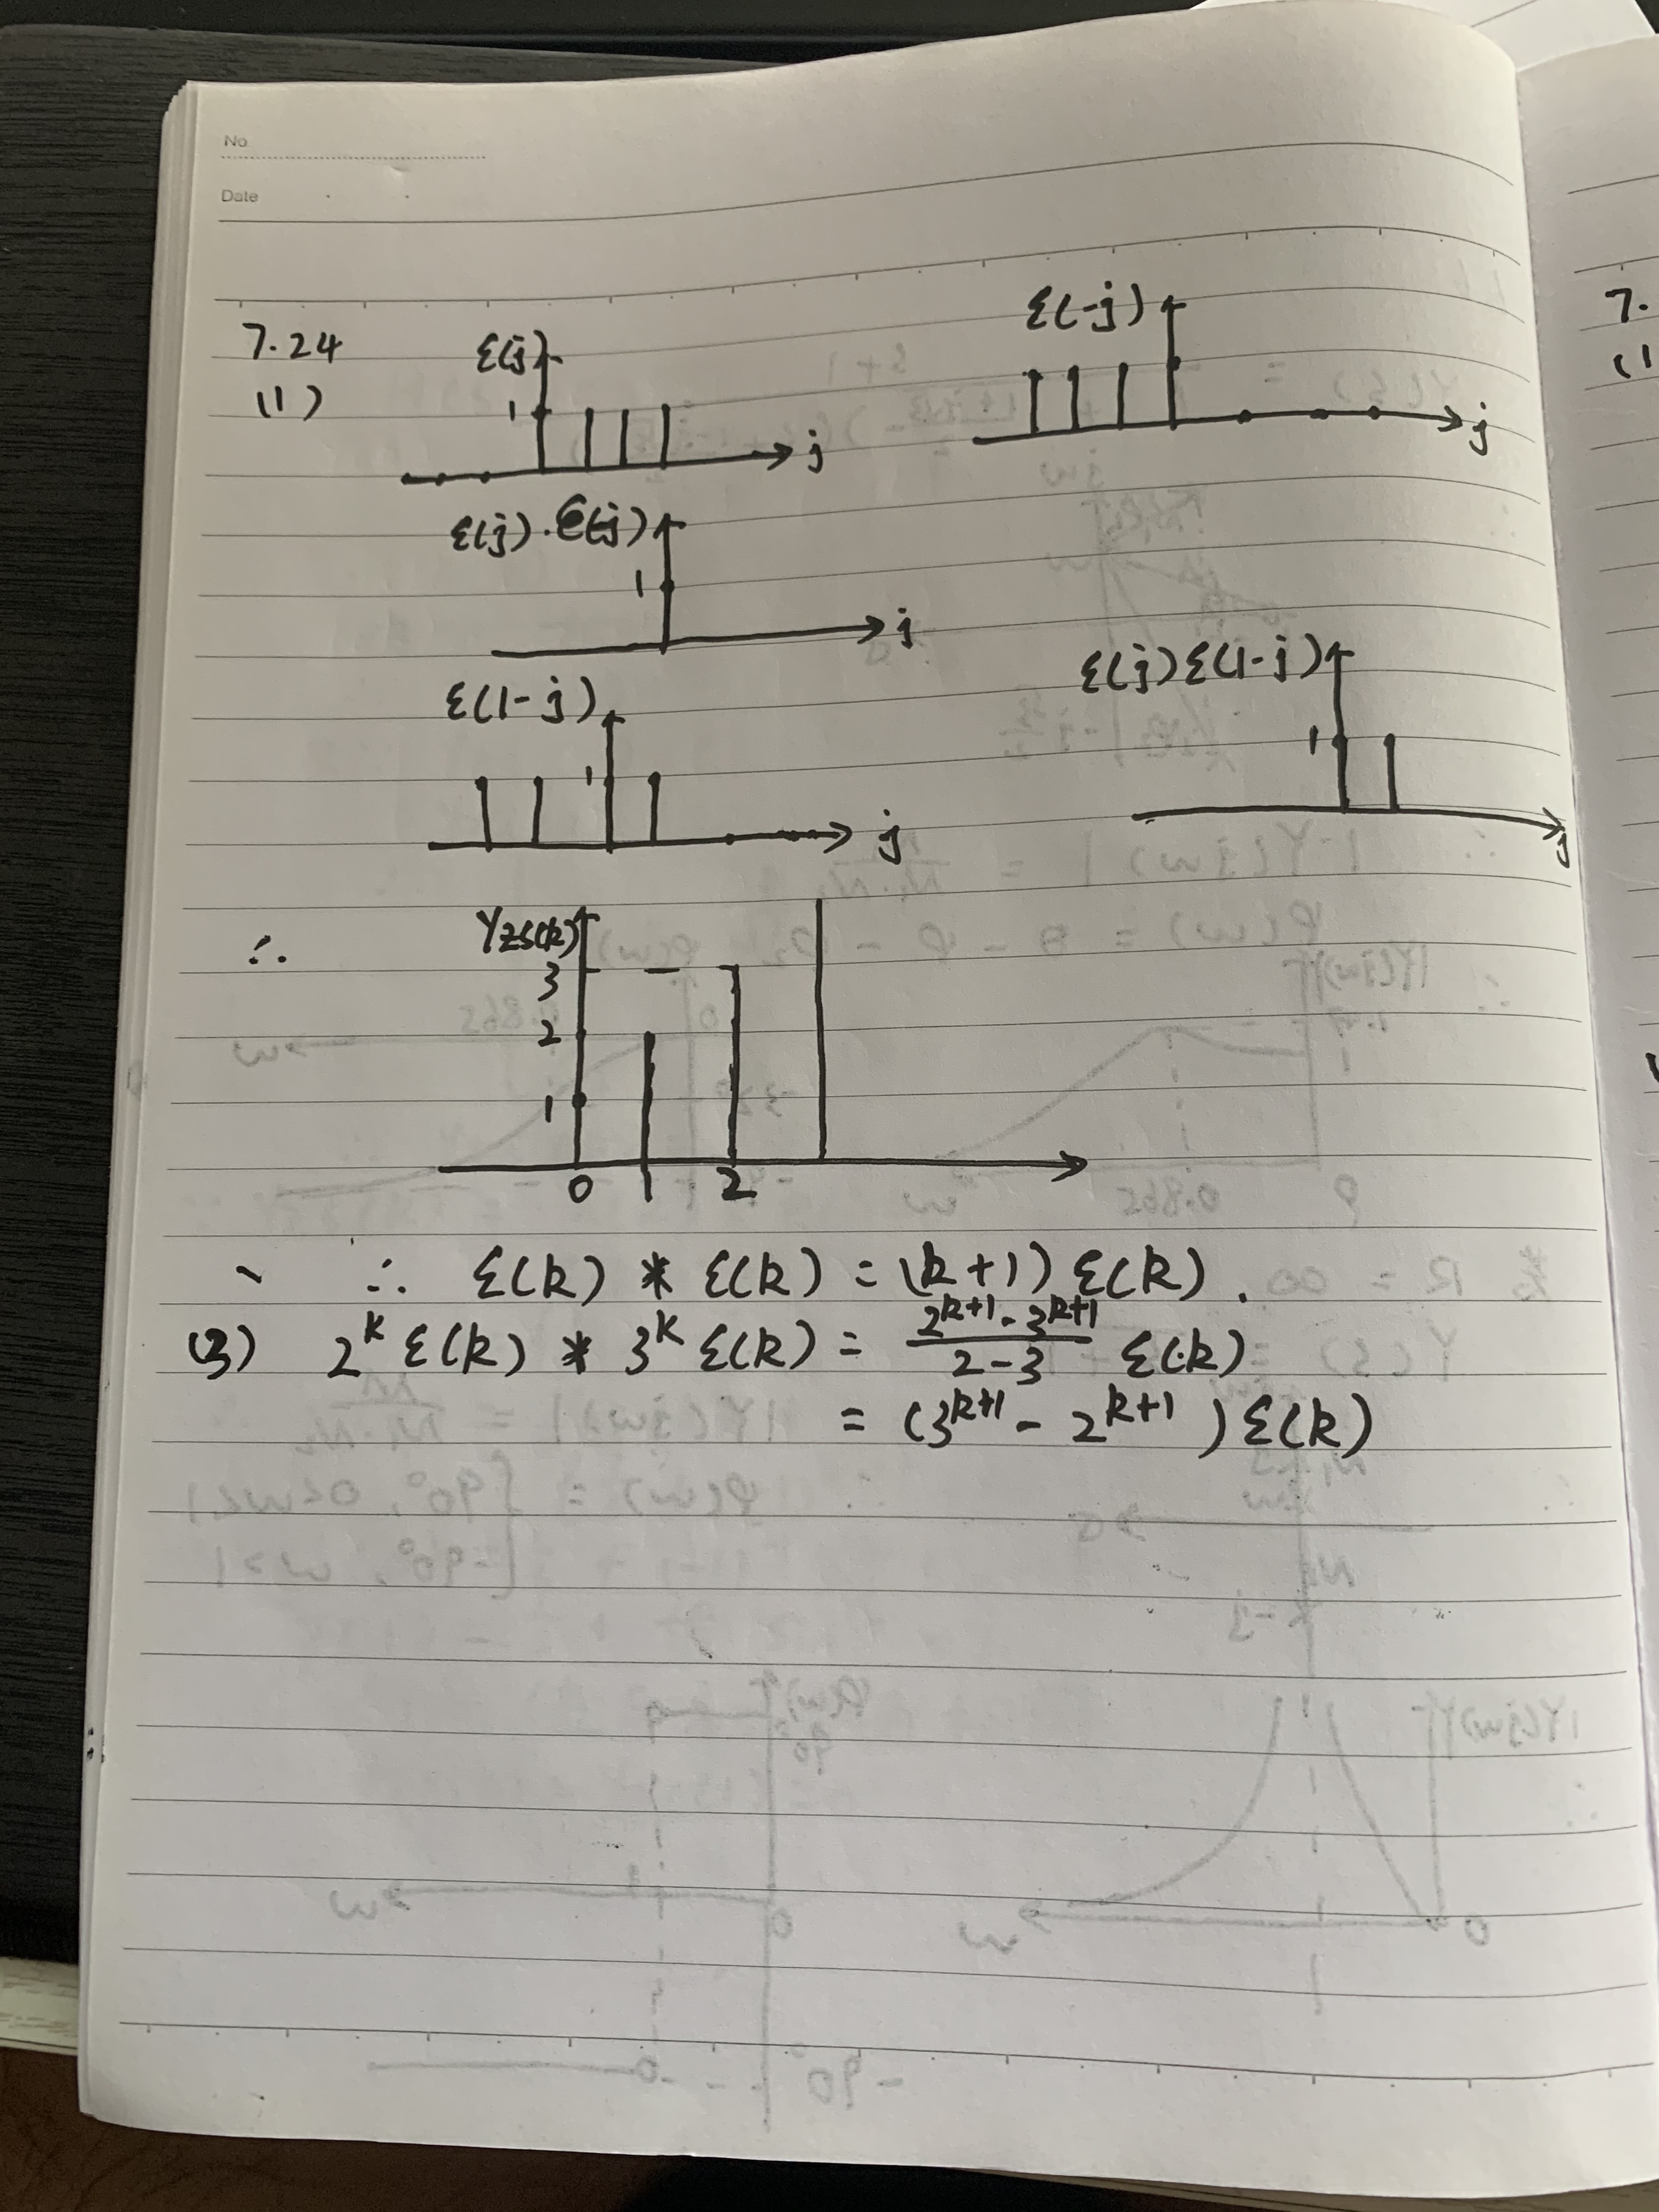 No.
Date
7.24
(1)
ε(j)
1
j
ε(-j)
j
ε(j)·ε(-j)
1
j
ε(1-j)
1
j
ε(j)ε(1-j)
1
j
∴
Yzs(k)
3
2
1
0 1 2
∴ ε(k) * ε(k) = (k+1) ε(k).
(3) 2^k ε(k) * 3^k ε(k) = (2^(k+1) - 3^(k+1))/(2-3) ε(k)
= (3^(k+1) - 2^(k+1)) ε(k)
7.
(1